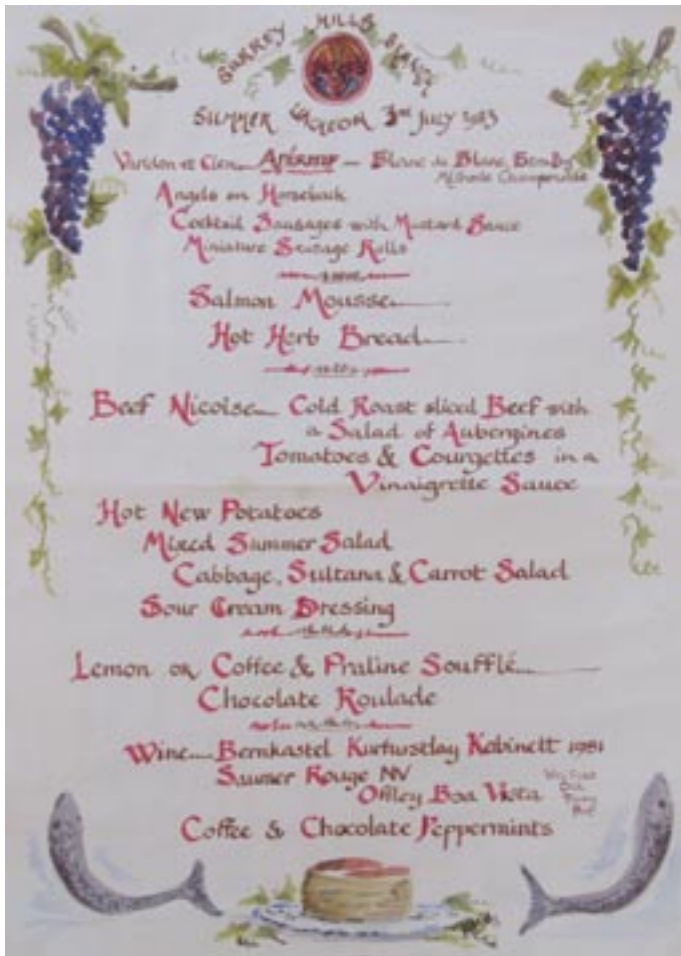 SURREY HILLS
SUMMER LUNCHEON 3rd JULY 1983
Apéritif — Blanc de Blanc
Méthode Champenoise
Angels on Horseback
Cocktail Sausages with Mustard Sauce
Miniature Sausage Rolls
Salmon Mousse
Hot Herb Bread
Beef Nicoise Cold Roast sliced Beef with
a Salad of Aubergines
Tomatoes & Courgettes in a
Vinaigrette Sauce
Hot New Potatoes
Mixed Summer Salad
Cabbage, Sultana & Carrot Salad
Sour Cream Dressing
Lemon or Coffee & Praline Soufflé
Chocolate Roulade
Wine Bernkastel Kurfurstlay Kabinett 1981
Saumur Rouge NV
Offley Boa Vista
Coffee & Chocolate Peppermints